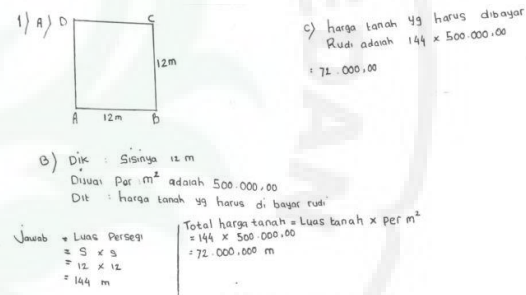 1) A) D C
12m
A 12m B
c) harga tanah yg harus dibayar
Rudi adalah 144 x 500.000,00
= 72.000,00
B) Dik : Sisinya 12 m
Dijual Per m² adalah 500.000,00
Dit : harga tanah yg harus di bayar rudi
Jawab = Luas Persegi
= S x S
= 12 x 12
= 144 m
Total harga tanah = Luas tanah x per m²
= 144 x 500.000,00
= 72.000.000 m